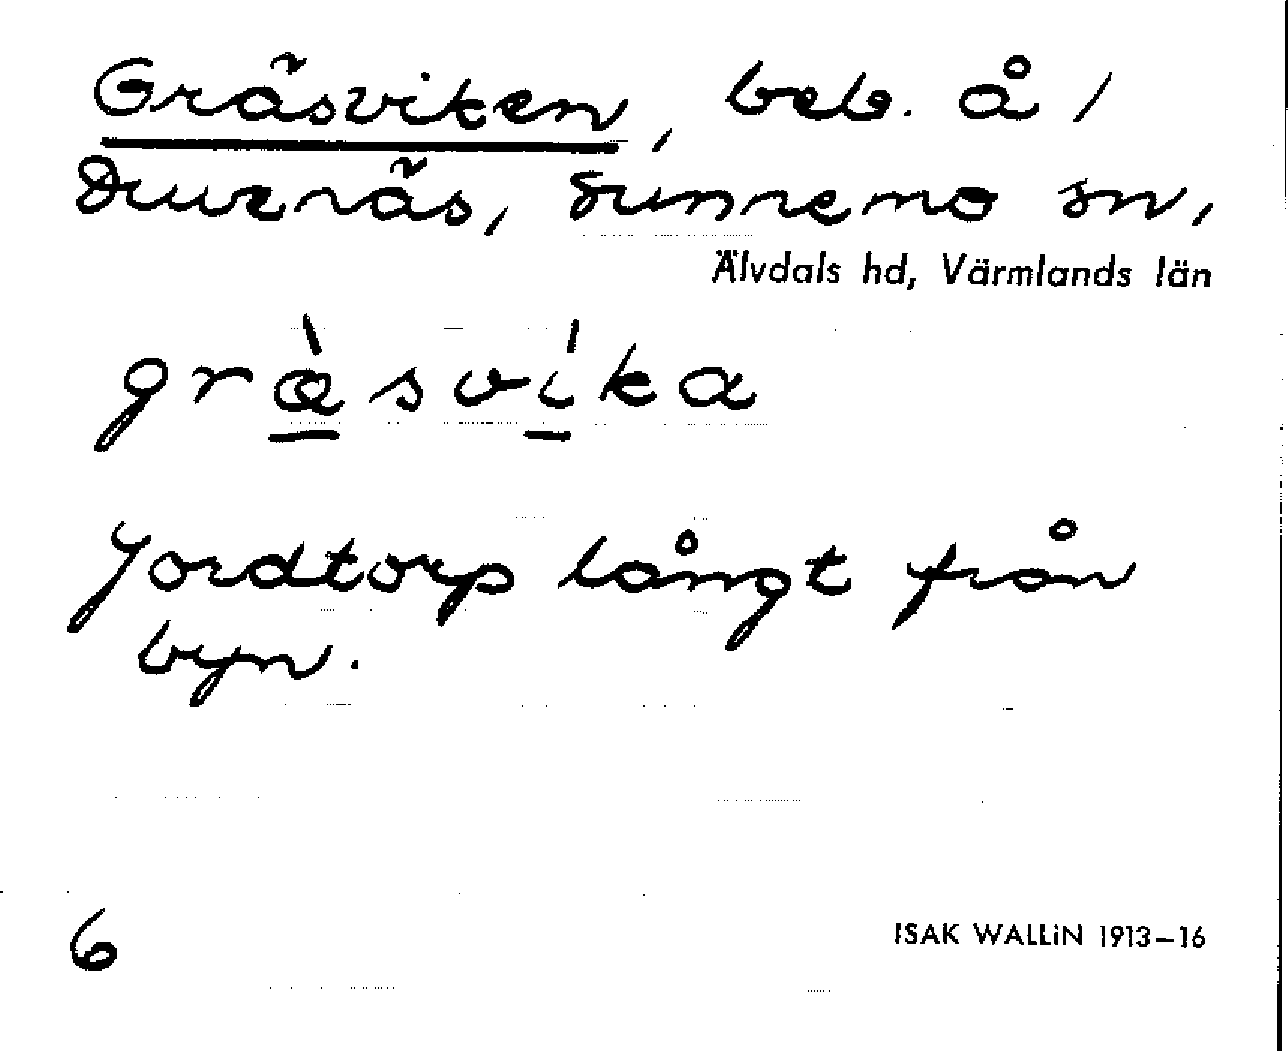 Gräsviken, beb. å /
Duvenäs, Sunnemo sn,
Älvdals hd, Värmlands län
græ̀svíka
Jordtorp långt från
byn.
6
ISAK WALLIN 1913–16